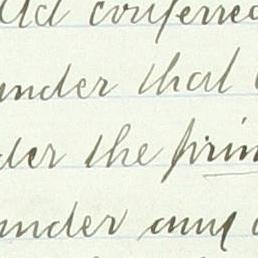 conferred
under that
the prin
under any